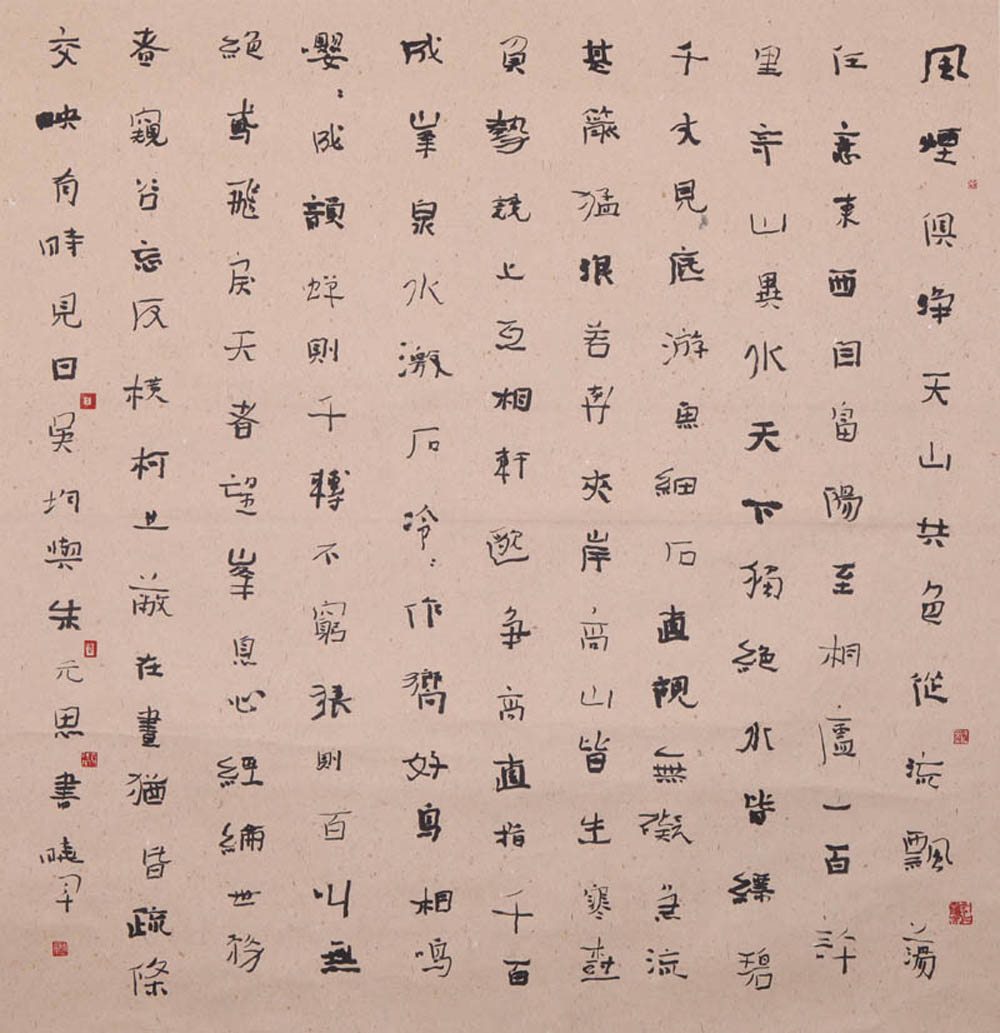 風煙俱淨天山共色從流飄蕩
任意東西自富陽至桐廬一百許
里奇山異水天下獨絕水皆縹碧
千丈見底游魚細石直視無礙急流
甚箭猛浪若奔夾岸高山皆生寒樹
負勢競上互相軒邈爭高直指千百
成峯泉水激石泠〻作響好鳥相鳴
嚶〻成韻蟬則千轉不窮猨則百叫無
絕鳶飛戾天者望峯息心經綸世務
者窺谷忘反橫柯上蔽在晝猶昏疏條
交映有時見日吳均與朱元思書曉軍